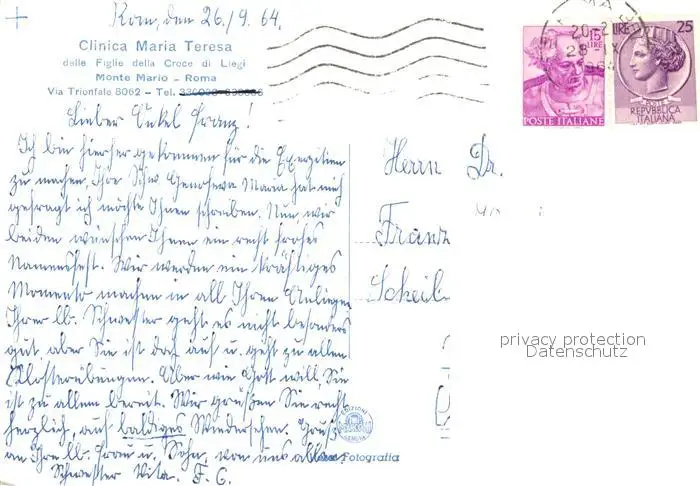 Rom, den 26./9. 64.
Clinica Maria Teresa
delle Figlie della Croce di Liegi
Monte Mario - Roma
Via Trionfale 8062 - Tel.
Lieber Onkel Franz!
Ich bin hierher gekommen für die Exerzitien
zu machen, Ihre Schw. Genofeva Maria hat mich
gefragt ich möchte Ihnen schreiben. Nun wir
beiden wünschen Ihnen ein recht frohes
Namensfest. Wir werden ein kräftiges
Momento machen in all Ihren Anliegen
Ihrer lb. Schwester geht es nicht besonders
gut, aber Sie ist doch auf u. geht zu allen
Klosterübungen. Aber wie Gott will Sie
ist zu allem bereit. Wir grüßen Sie recht
herzlich, auf baldiges Wiedersehen. Gruß
an Ihre lb. Frau u. Sohn, von uns allen.
Schwester Vita. F. C.
Herrn Dr.
Franz
Scheil
15
LIRE
POSTE ITALIANE
LIRE 25
POSTE
REPVBBLICA
ITALIANA
ROMA
20-21
28 IX
Fotografia
privacy protection
Datenschutz